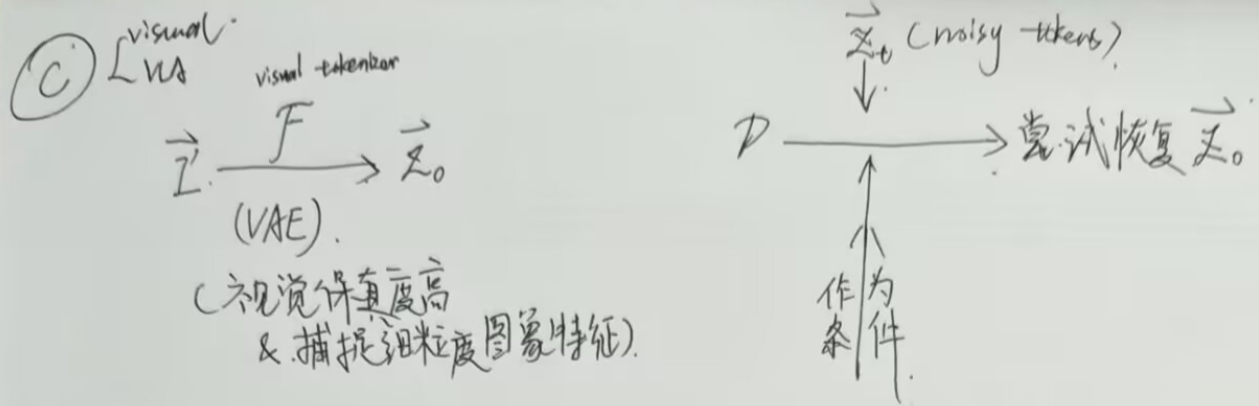 C L visual
VLA
visual tokenizer
F
I → z₀
(VAE).
(视觉保真度高
& 捕捉细粒度图象特征).
z_t (noisy tokens)
D → 尝试恢复 z₀
作为
条件